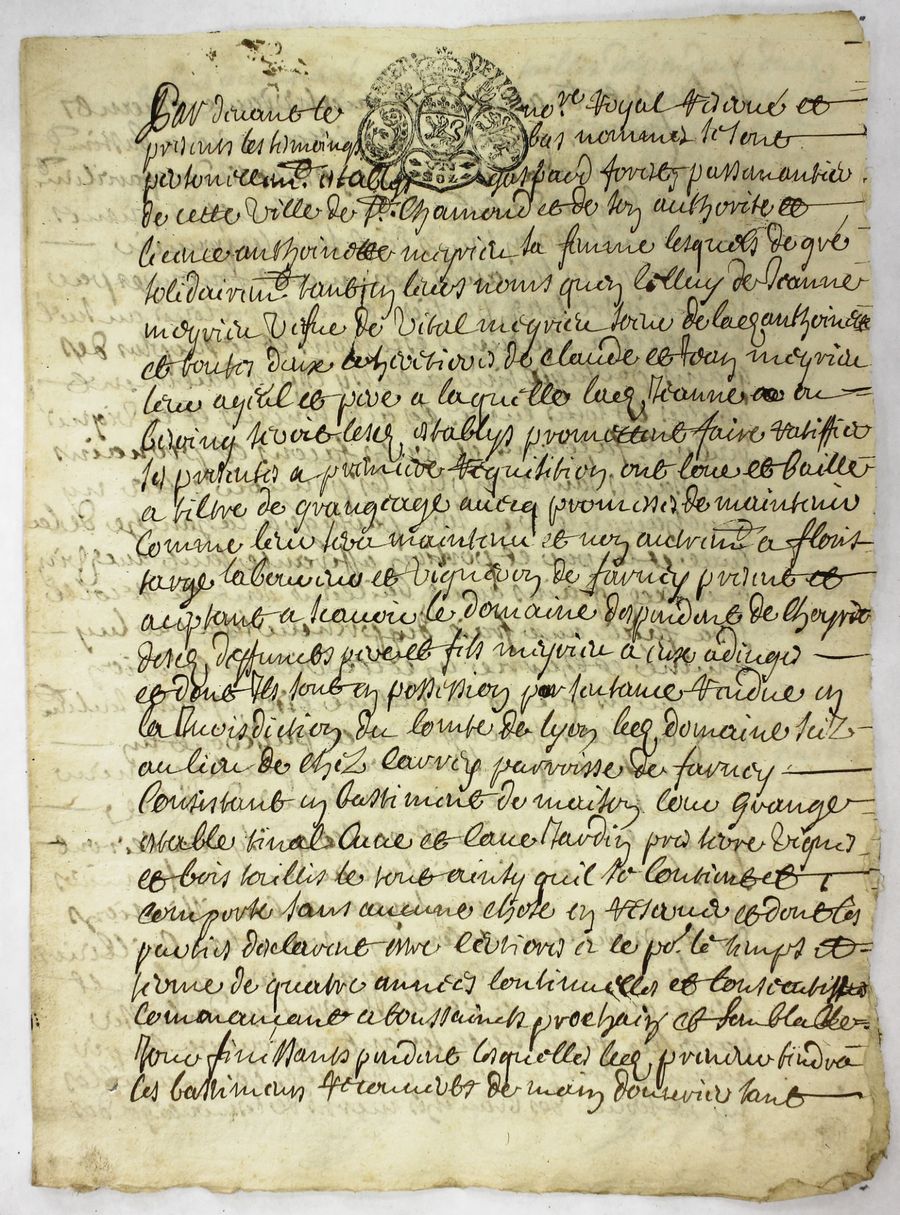 Par devant le no.re royal réservé et
presents les tesmoings bas nommes se sont
personellem.t establys gaspard forest passamantier
de cette Ville de S.t Chamond et de son authorité et
licance anthoinette meyrieu sa femme lesquels de gré
solidairem.t tant en leurs noms quen Celluy de Jeanne
meyrieu Vefve de Vital meyrieu soeur de lad anthoinette
et toutes deux cohéritieres de Claude et Jean meyrieu
leur ayeul et pere a laquelle lad Jeanne ou
besoing seroit lesd establys promettent faire ratiffier
les presentes a premiere requisition ont loué et baillé
a tiltre de grangeage avecq promesses de maintenir
Comme leur sera maintenu et non autrem.t a
laboureur et Vigneron de farney present et
aceptant a scavoir le domaine despendent de
desd deffuncts pere et fils meyrieu a eux adjugés
et dont Ils sont en possession par sentance randue en
la Jurisdiction du Comte de Lyon led domaine scis
au lieu de Chez parroisse de farney
Consistant en bastiment de maison Cour Grange
estable tinal Cuve et Cave Jardin pres terre Vignes
et bois taillis le tout ainsy quil se Contient et
comporte sans aucune chose en reserver et dont les
parties desclarent estre Certiores et ce po.r le temps et
terme de quatre années Continuelles et Consecutifves
Commancant a toussaincts prochain et semblable
Jour finissants pendent lesquelles led preneur tiendra
les bastiments recouverts de main douvrier tant